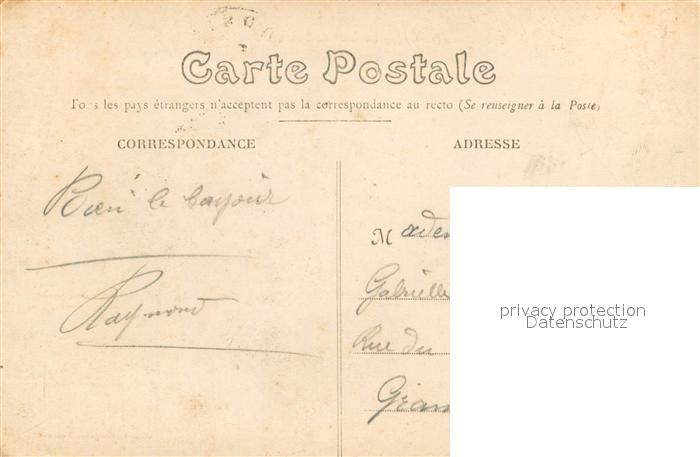 Carte Postale
Tous les pays étrangers n'acceptent pas la correspondance au recto (Se renseigner à la Poste)
CORRESPONDANCE
ADRESSE
Bien le bonjour
Raymond
Madem
Gabrielle
Rue du
Gran
privacy protection
Datenschutz